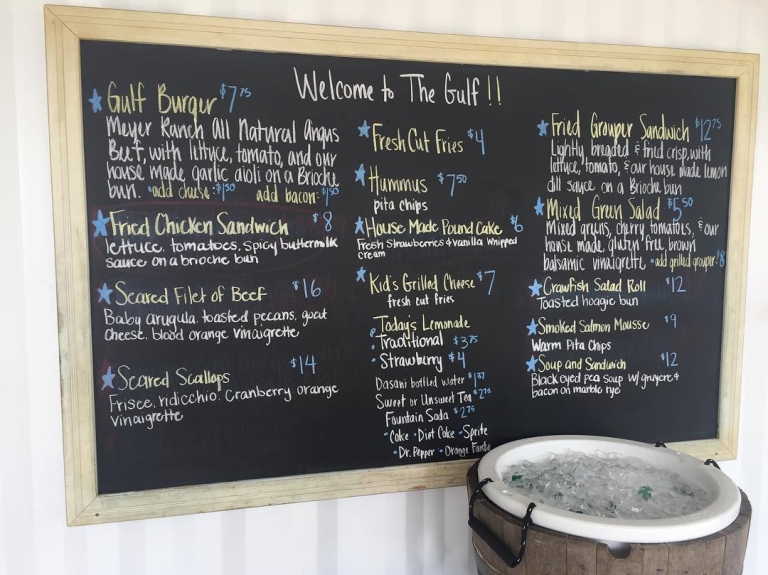 Welcome to The Gulf !!
Gulf Burger $7.75
Meyer Ranch All Natural Angus
Beef, with lettuce, tomato, and our
house made garlic aioli on a Brioche
bun. *add cheese: $1.50 add bacon: $1.50
Fried Chicken Sandwich $8
lettuce, tomatoes, spicy buttermilk
sauce on a brioche bun
Seared Filet of Beef $16
Baby arugula, toasted pecans, goat
cheese, blood orange vinaigrette
Seared Scallops $14
Frisee, ridicchio, Cranberry orange
vinaigrette
Fresh Cut Fries $4
Hummus $7.50
pita chips
House Made Pound Cake $6
Fresh Strawberries & Vanilla Whipped
Cream
Kid's Grilled Cheese $7
fresh cut fries
Today's Lemonade
Traditional $3.75
Strawberry $4
Dasani bottled water $1.37
Sweet or Unsweet Tea $2.75
Fountain Soda $2.75
•Coke •Diet Coke •Sprite
•Dr. Pepper •Orange Fanta
Fried Grouper Sandwich $12.75
Lightly breaded & fried crisp, with
lettuce, tomato, & our house made lemon
dill sauce on a Brioche bun
Mixed Green Salad $5.50
Mixed greens, cherry tomatoes, & our
house made, gluten free brown
balsamic vinaigrette *add grilled grouper: $8
Crawfish Salad Roll $12
Toasted hoagie bun
Smoked Salmon Mousse $9
Warm Pita Chips
Soup and Sandwich $12
Black eyed pea soup w/ gruyere &
bacon on marble rye